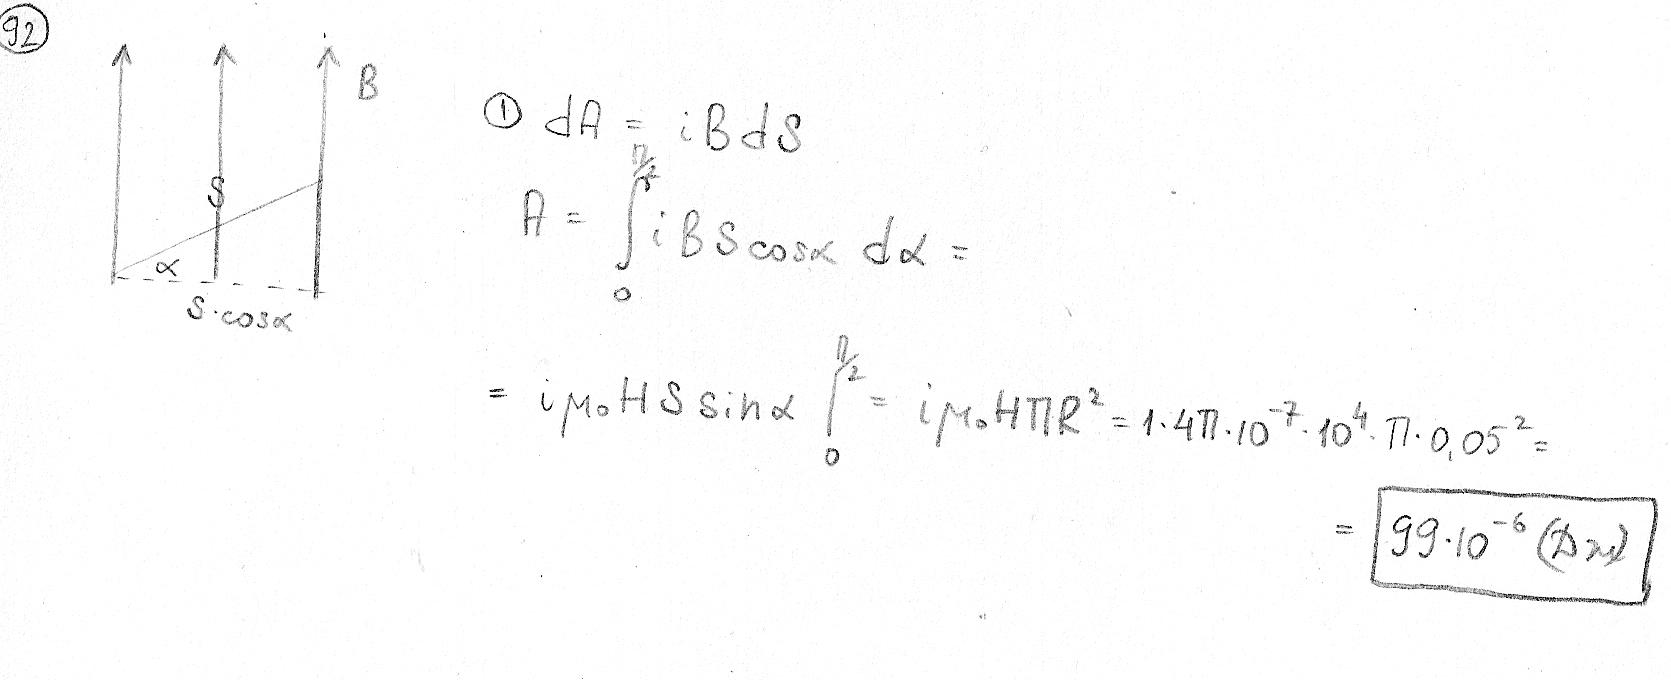 92
B
S
α
S·cosα
① dA = iBdS
A = ∫₀^{π/2} iBScosα dα =
= iμ₀HSsinα |₀^{π/2} = iμ₀HπR² = 1·4π·10⁻⁷·10⁴·π·0,05² =
= 99·10⁻⁶ (Дж)